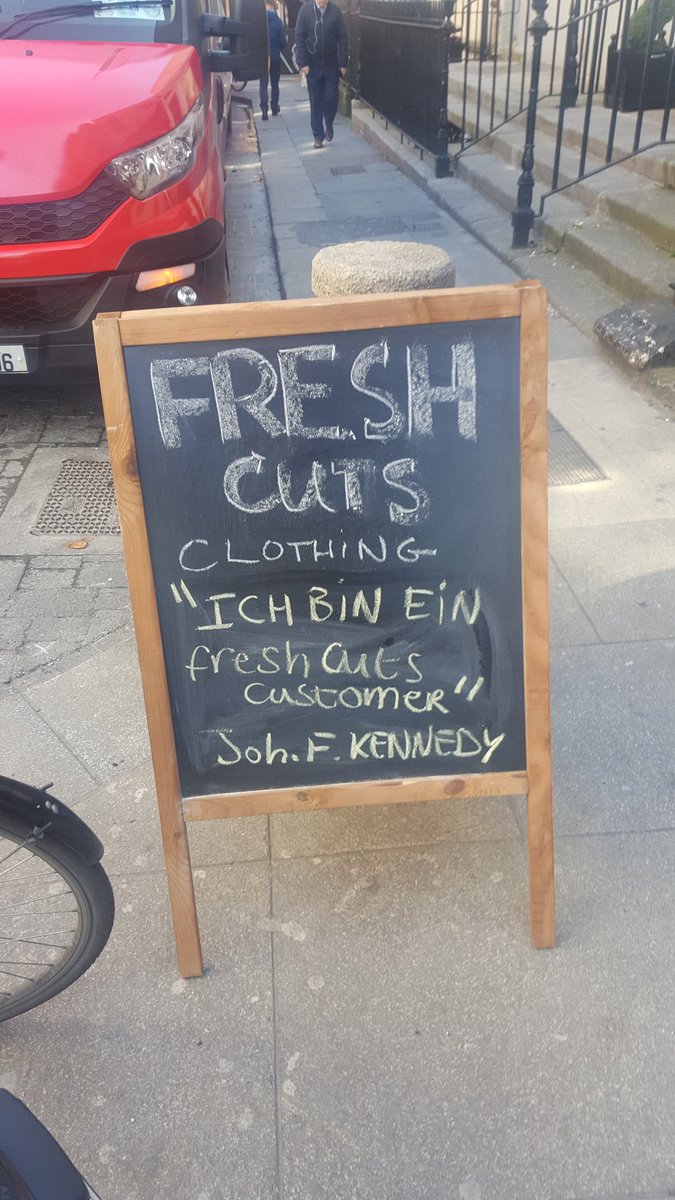 FRESH
CUTS
CLOTHING
"ICH BIN EIN
fresh Cuts
customer"
Joh. F. KENNEDY